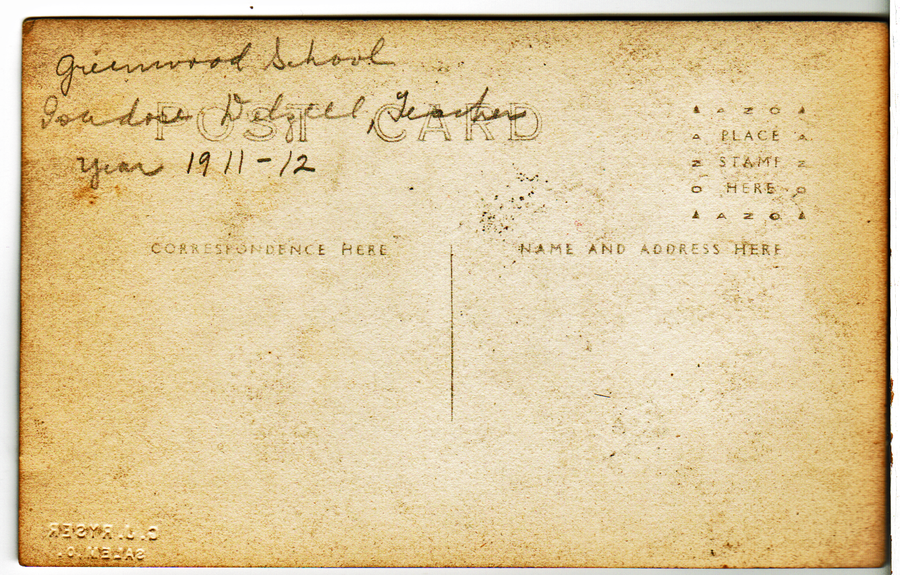 Greenwood School
Isadore Delzell, Teacher
Year 1911-12
POST CARD
AZO
PLACE
STAMP
HERE
AZO
CORRESPONDENCE HERE
NAME AND ADDRESS HERE
C.J. RYSER
SALEM, O.